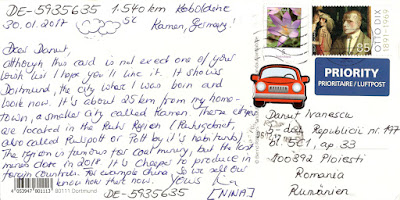 DE-5935635 1.540 km Koboldine
30.01.2017 5C Kamen, Germany!
Dear Danut,
although this card is not exact one of your
wish list I hope you'll like it. It shows
Dortmund, the city where I was born and
work now. It's about 25 km from my home-
town, a smaller city called Kamen. These cities
are located in the Ruhr Region (Ruhrgebiet,
also called Ruhrpott or Pott by it's habitants).
The region is famous for coal mining, but the last
mines close in 2018. It's cheaper to produce in
foreign countries. For example China. So we sell our
know how there now. Yours
[NINA]
DE-5935635
4 053947 001113
80111 Dortmund
OTTO DIX
1891-1969
85
PRIORITY
PRIORITAIRE / LUFTPOST
Danut Ivanescu
5-dul Republicii nr. 197
bl. 5C1, ap 33
100892 Ploiesti
Romania
Rumänien